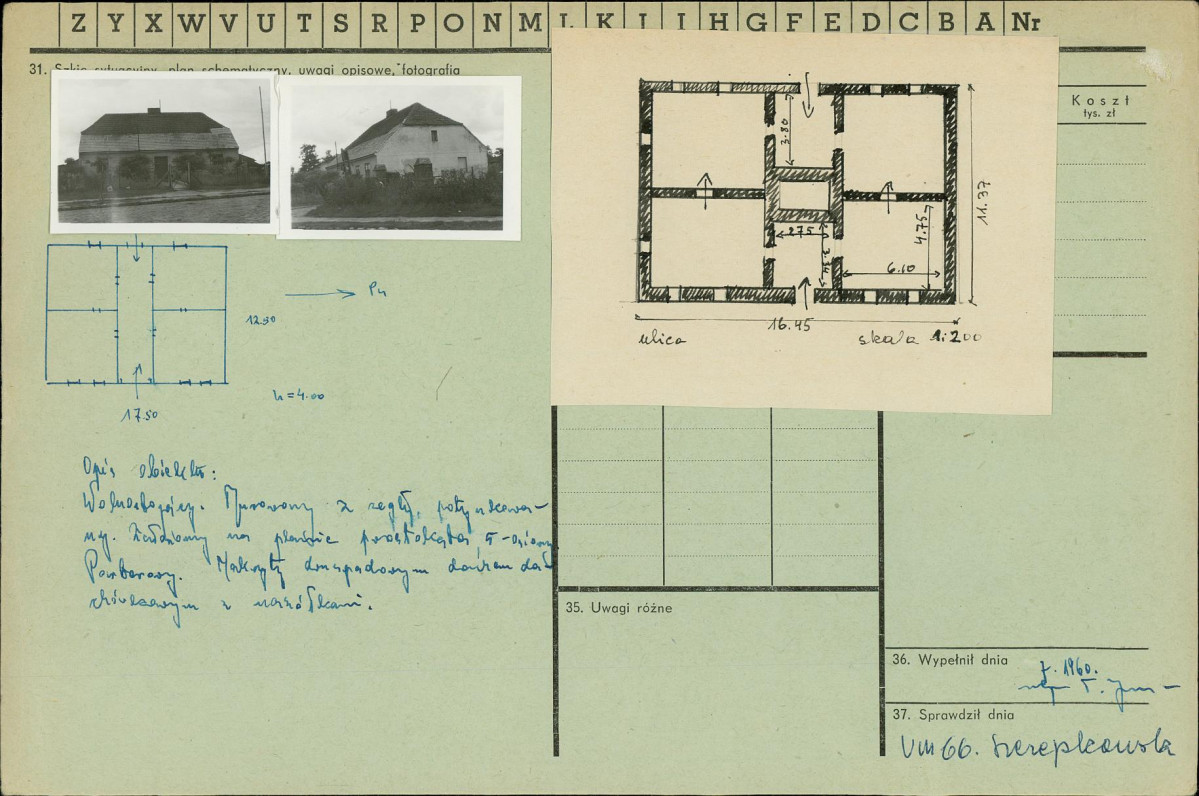 Z Y X W V U T S R P O N M L K J I H G F E D C B A Nr
31. Szkic sytuacyjny, plan schematyczny, uwagi opisowe, fotografia
Koszt
tys. zł
3.80
275
2.34
4.75
6.10
11.37
16.45
ulica
skala 1:200
Pn
12.50
h=4.00
17.50
Opis obiektu:
Wolnostojący. Murowany z cegły, potynkowa-
ny. Założony na planie prostokąta, 5-osiowy
Parterowy. Nakryty dwuspadowym dachem da-
chówkowym z naczółkami.
35. Uwagi różne
36. Wypełnił dnia
7. 1960.
mgr
37. Sprawdził dnia
VIII 66. Szczepkowska